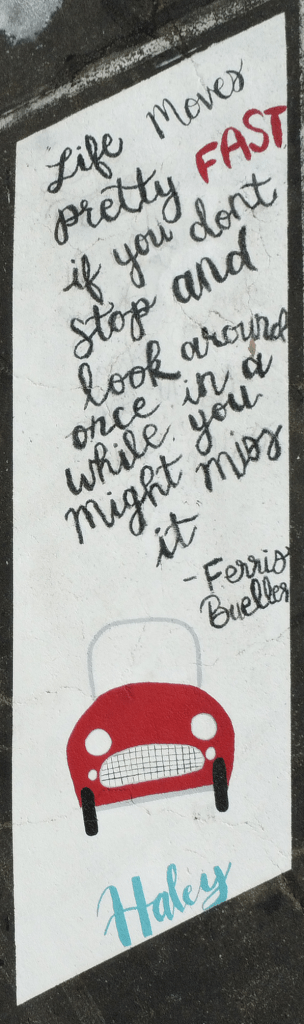 Life Moves
pretty FAST
if you dont
stop and
look around
once in a
while you
might miss
it
- Ferris
Bueller
Haley